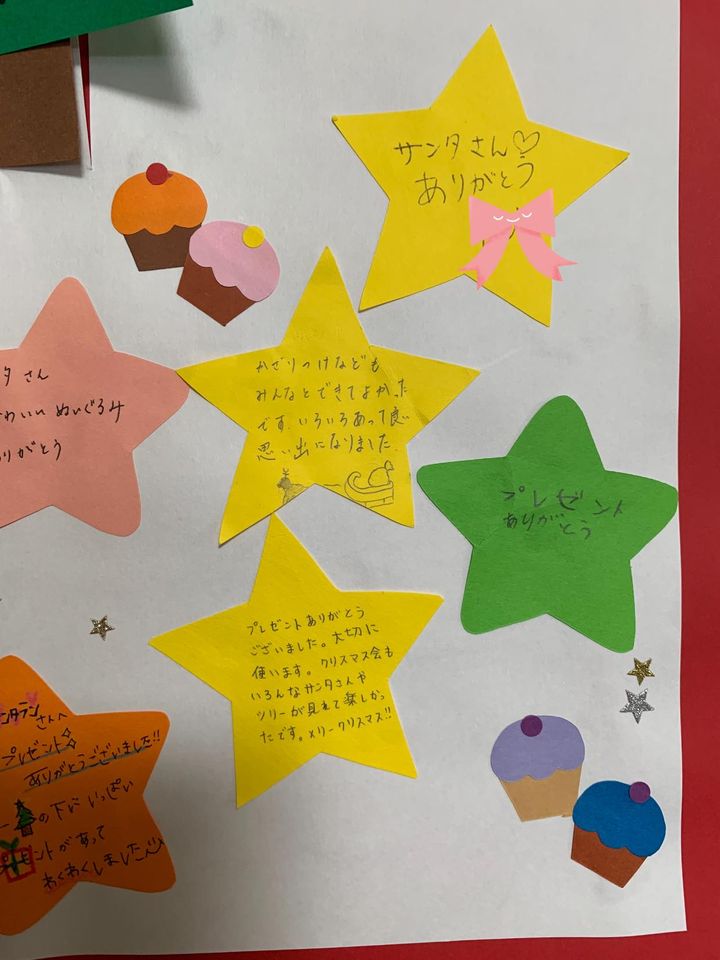 サンタさん♡
ありがとう
かざりつけなども
みんなとできてよかった
です。いろいろあって良い
思い出になりました。
タさん
わいい ぬいぐるみ
りがとう
プレゼント
ありがとう
プレゼントありがとう
ございました。大切に
使います。クリスマス会も
いろんなサンタさんや
ツリーが見れて楽しかっ
たです。メリークリスマス!!
ンタラン
さんへ
プレゼント
ありがとうございました!!
の下にいっぱい
ントがあって
わくわくしました